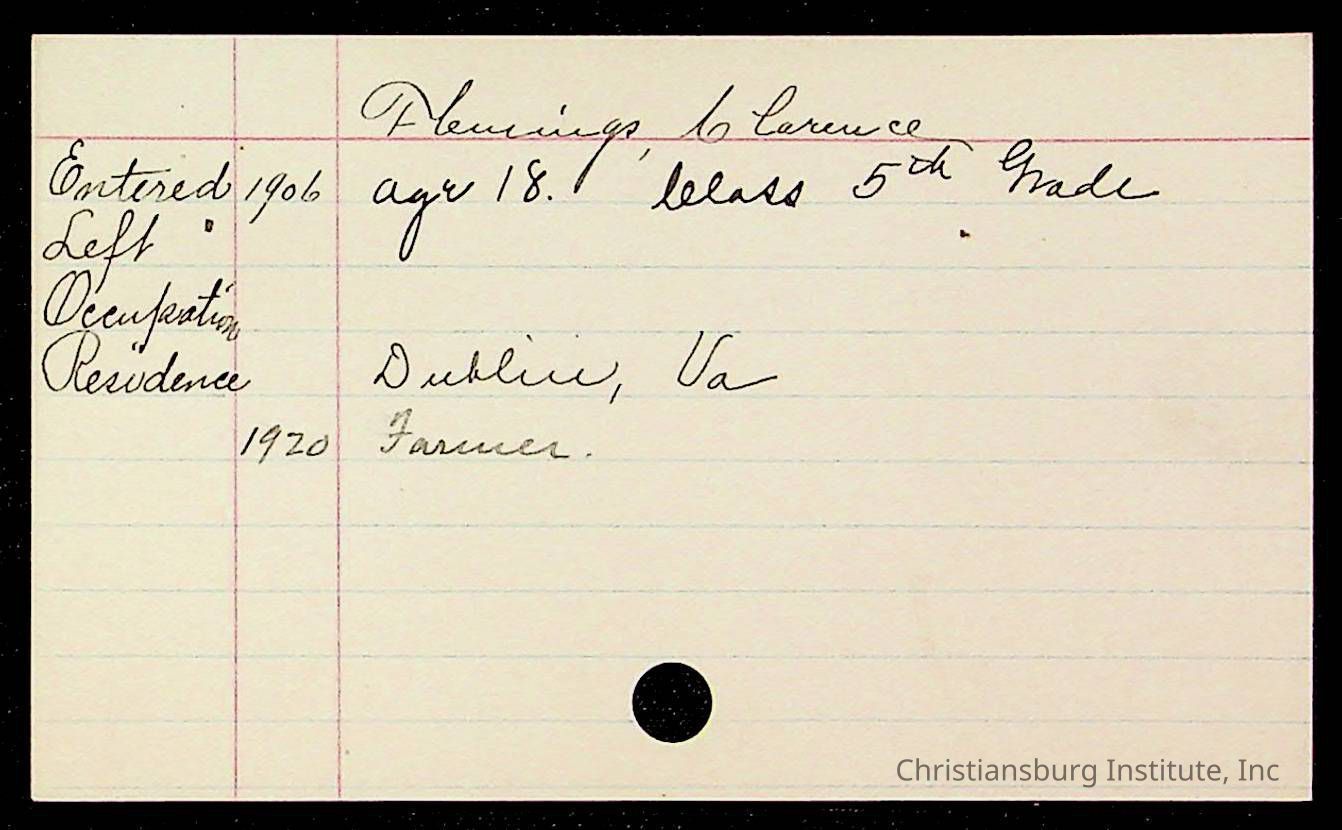 Flemings, Clarence
Entered 1906 age 18. Class 5th Grade
Left
Occupation
Residence Dublin, Va
1920 Farmer.
Christiansburg Institute, Inc